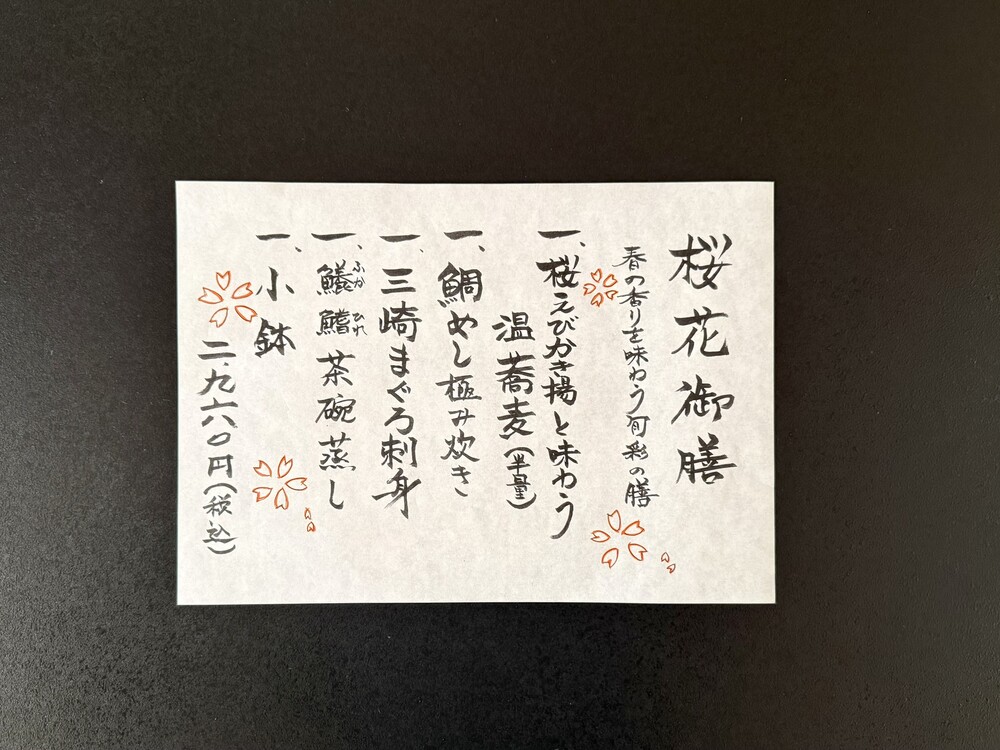 桜花御膳
春の香りを味わう旬彩の膳
一、桜えびかき揚と味わう
温蕎麦(半量)
一、鯛めし極み炊き
一、三崎まぐろ刺身
一、鱶鰭茶碗蒸し
ふかひれ
一、小鉢
二、九六〇円(税込)